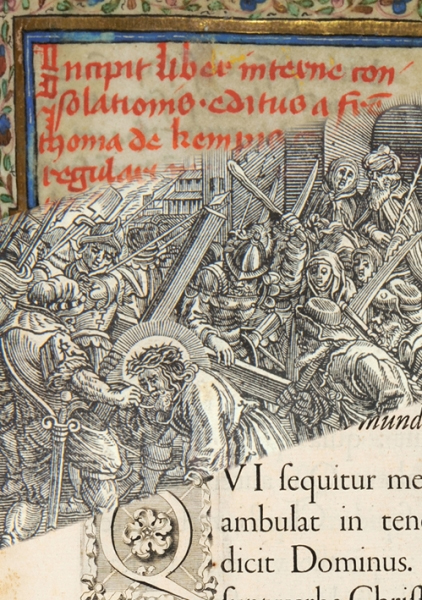 Incipit liber interne con
solationis · editus a fr̄e
thoma de kempis
regulari
mund
QVI ſequitur me
ambulat in ten
dicit Dominus.